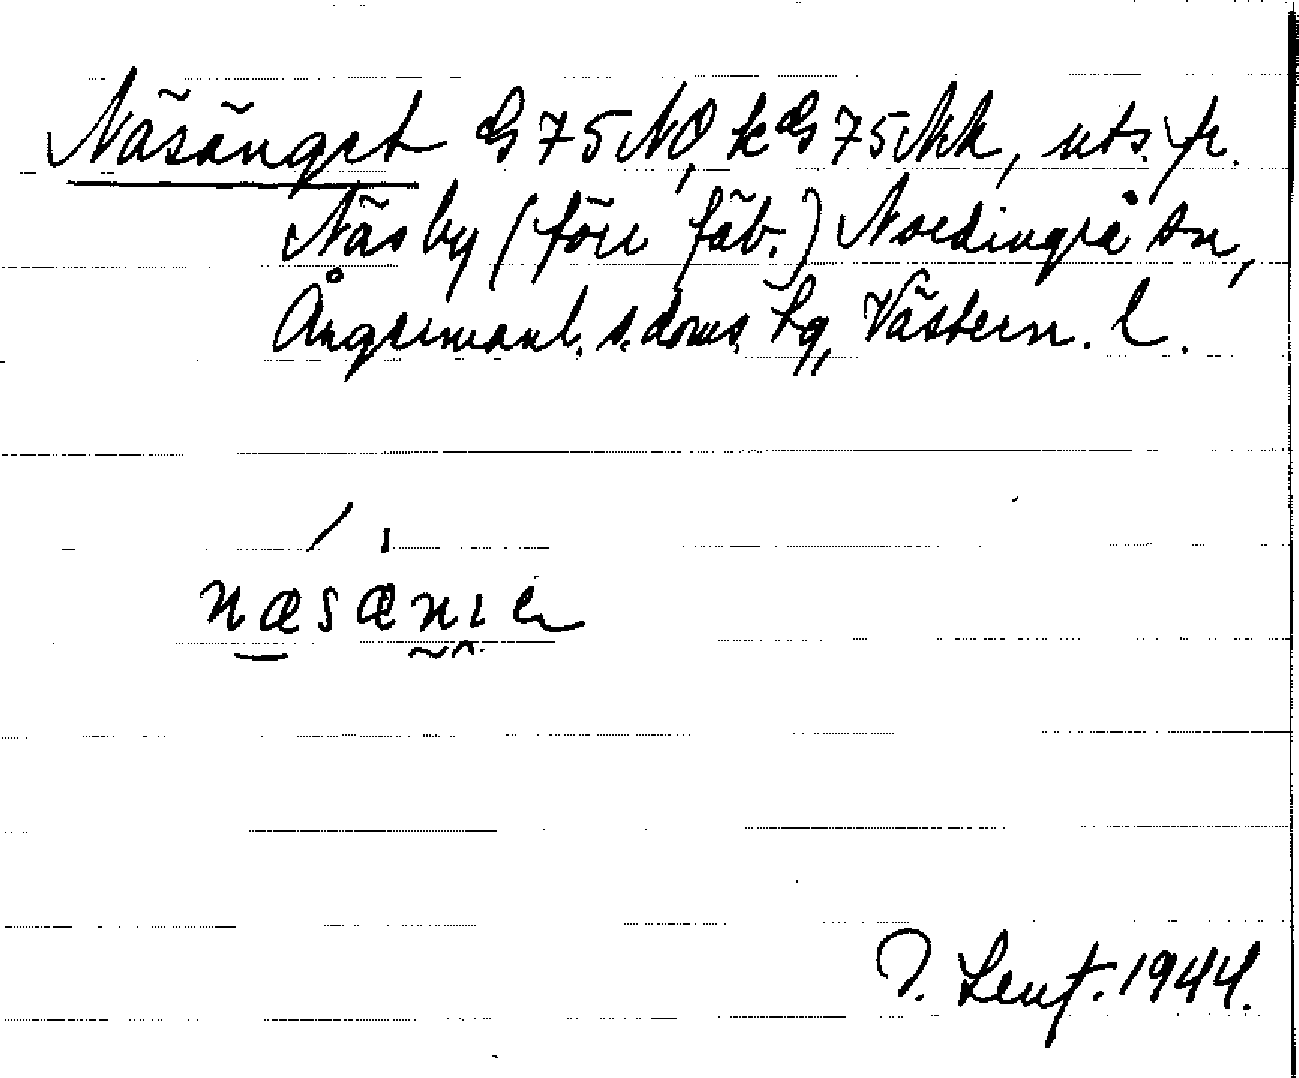 Näsänget G 75 NO, k G 75 Nk, uts. fr.
Näsby (förr fäb.) Nordingrå sn,
Ångermanl. s. doms. tg, Västern. l.
næsænıe
Lenf. 1944.